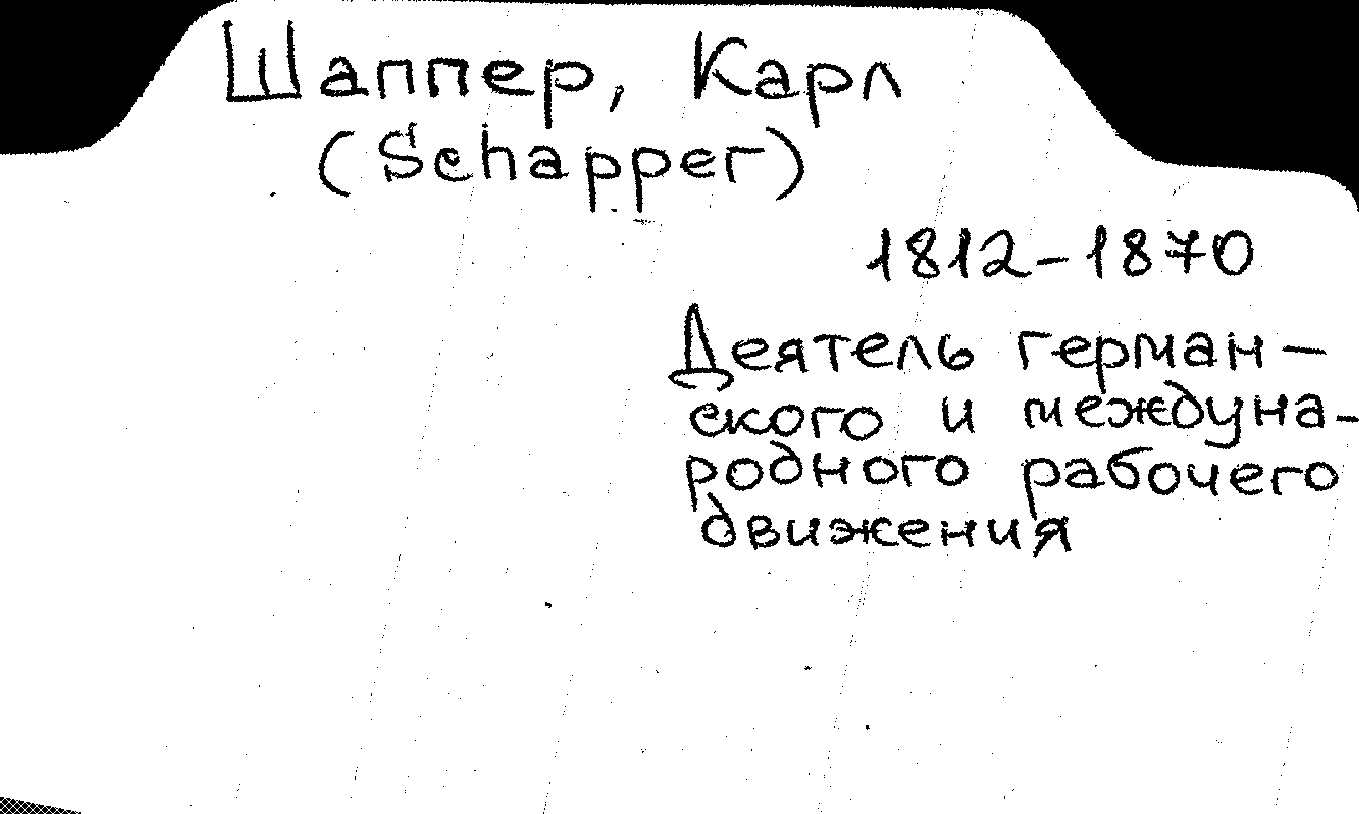 Шаппер, Карл
(Schapper)
1812-1870
Деятель герман-
ского и междуна-
родного рабочего
движения